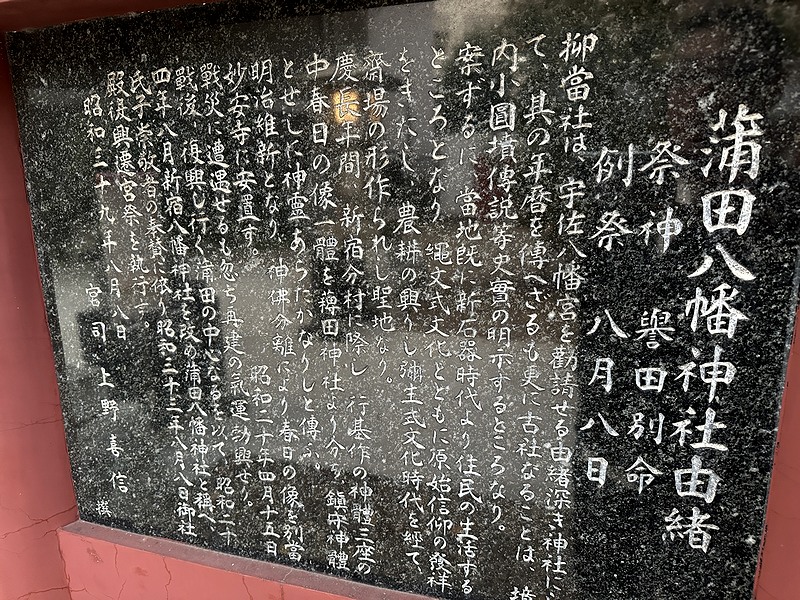 蒲田八幡神社由緒
祭神 譽田別命
例祭 八月八日
抑當社は、宇佐八幡宮を勸請せる由緒深き神社に
て、其の年暦を傳へざるも更に古社なることは、境
内小圓墳傳説等史實の明示するところなり。
案ずるに、當地既に新石器時代より住民の生活する
ところとなり、縄文式文化とともに原始信仰の發祥
をきたし、農耕の興りし彌生式文化時代を經て、
齋場の形作られし聖地なり。
慶長年間、新宿分村に際し、行基作の神體三座の
中春日の像一體を薭田神社より分ち、鎮守神體
とせしに神靈あらたかなりしと傳ふ。
明治維新となり、神佛分離により春日の像を別當
妙安寺に安置す。 昭和二十年四月十五日
戰災に遭遇せるも忽ち再建の氣運勃興せり。
戰後、復興し行く蒲田の中心なるを以て、昭和二十
四年八月新宿八幡神社を改め蒲田八幡神社と稱へ、
氏子崇敬者の奉賛に依り昭和三十二年八月八日御社
殿復興遷宮祭を執行す。
昭和三十九年八月八日
宮司 上野喜信 撰